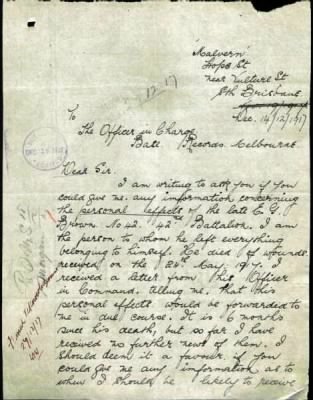 "Malvern"
Hope St
near Vulture St
Sth Brisbane
Dec. 14/12/17
To
The Officer in Charge
Base Records Melbourne.
Dear Sir.
I am writing to ask you if you
could give me any information concerning
the personal effects of the late E. G.
Brown No 42. 42nd Battalion. I am
the person to whom he left everything
belonging to himself. He died of wounds
received on the May 1917. I
received a letter from the Officer
in Command. telling me. that this
personal effects would be forwarded to
me in due course. It is 6 months
since his death, but so far I have
received no further news of them. I
should deem it a favour if you
could give me any information as to
when I should be likely to receive